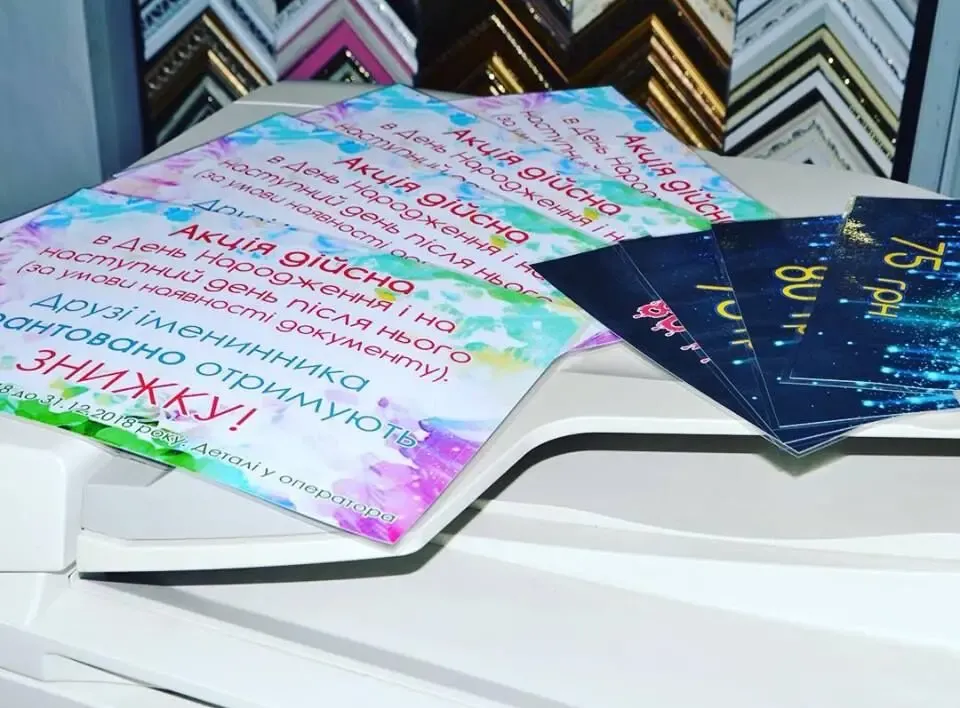 Акція дійсна
в День Народження і на
наступний день після нього
(за умови наявності документу).
Друзі іменинника
рантовано отримують
ЗНИЖКУ!
8 до 31.12.2018 року. Деталі у оператора
Акція дійсна
в День Народження і на
наступний день після нього
(за умови наявності
Друзі
Акція дійсна
в День Народження і н
наступний день після
Акція дійсна
в День Народж
наступни
80
75 грн